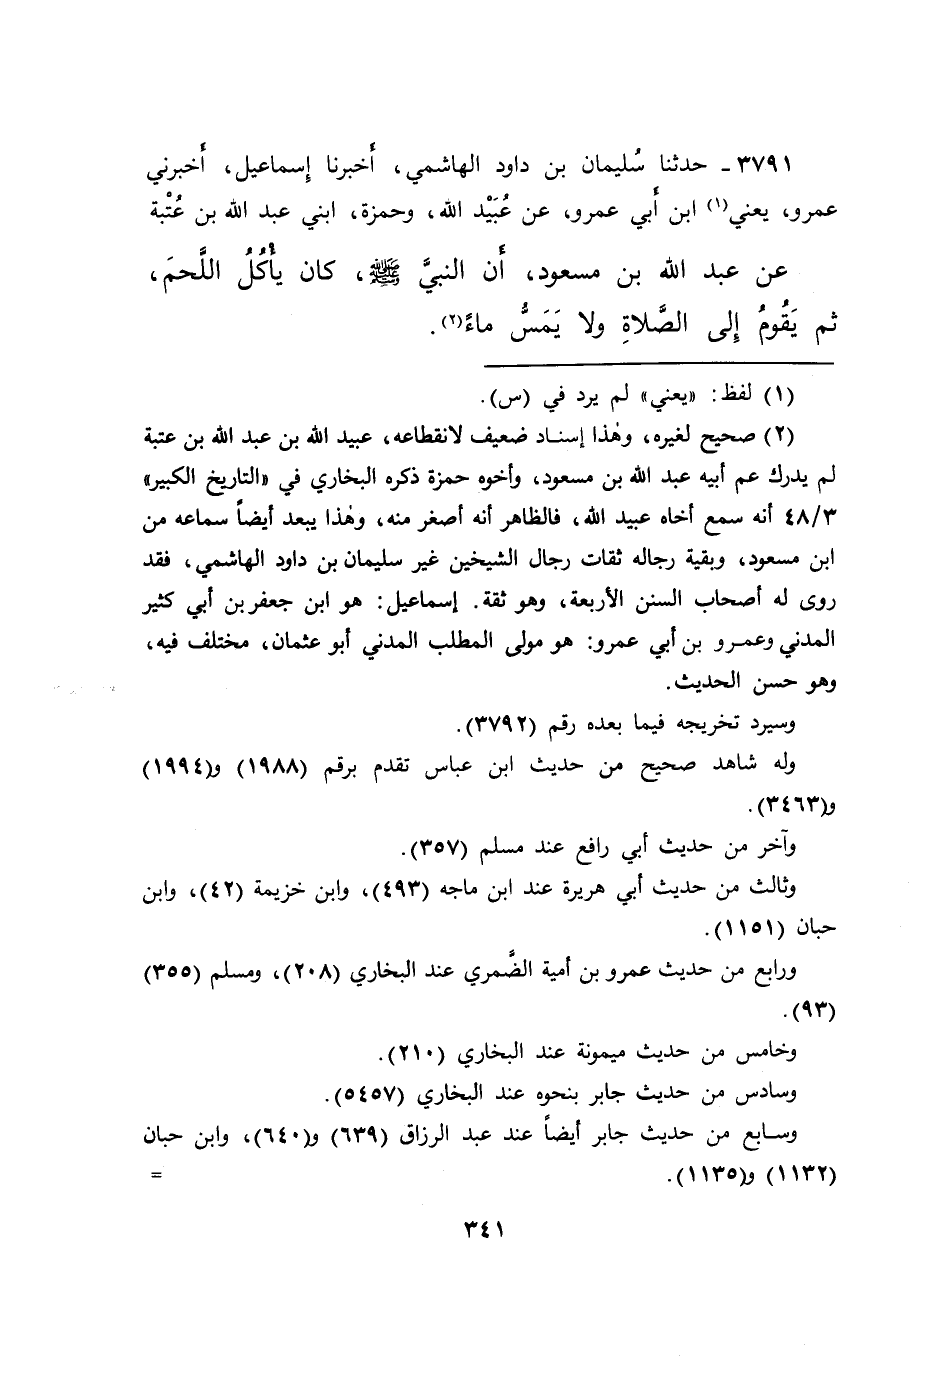 ٣٧٩١ ـ حدثنا سُليمان بن داود الهاشمي، أَخبرنا إِسماعيل، أَخبرني
عمرو، يعني(١) ابن أَبي عمرو، عن عُبَيْد الله، وحمزة، ابني عبد الله بن عُتْبة
عن عبد الله بن مسعود، أَن النبيَّ ﷺ، كان يأْكُلُ اللَّحمَ،
ثم يَقُومُ إِلى الصَّلاةِ ولا يَمَسُّ ماءً(٢).
(١) لفظ: «يعني» لم يرد في (س).
(٢) صحيح لغيره، وهٰذا إسناد ضعيف لانقطاعه، عبيد الله بن عبد الله بن عتبة
لم يدرك عم أبيه عبد الله بن مسعود، وأخوه حمزة ذكره البخاري في «التاريخ الكبير»
٤٨/٣ أنه سمع أخاه عبيد الله، فالظاهر أنه أصغر منه، وهٰذا يبعد أيضاً سماعه من
ابن مسعود، وبقية رجاله ثقات رجال الشيخين غير سليمان بن داود الهاشمي، فقد
روى له أصحاب السنن الأربعة، وهو ثقة. إسماعيل: هو ابن جعفر بن أبي كثير
المدني وعمرو بن أبي عمرو: هو مولى المطلب المدني أبو عثمان، مختلف فيه،
وهو حسن الحديث.
وسيرد تخريجه فيما بعده رقم (٣٧٩٢).
وله شاهد صحيح من حديث ابن عباس تقدم برقم (١٩٨٨) و(١٩٩٤)
و(٣٤٦٣).
وآخر من حديث أبي رافع عند مسلم (٣٥٧).
وثالث من حديث أبي هريرة عند ابن ماجه (٤٩٣)، وابن خزيمة (٤٢)، وابن
حبان (١١٥١).
ورابع من حديث عمرو بن أمية الضَّمري عند البخاري (٢٠٨)، ومسلم (٣٥٥)
(٩٣).
وخامس من حديث ميمونة عند البخاري (٢١٠).
وسادس من حديث جابر بنحوه عند البخاري (٥٤٥٧).
وسابع من حديث جابر أيضاً عند عبد الرزاق (٦٣٩) و(٦٤٠)، وابن حبان
(١١٣٢) و(١١٣٥). =
٣٤١